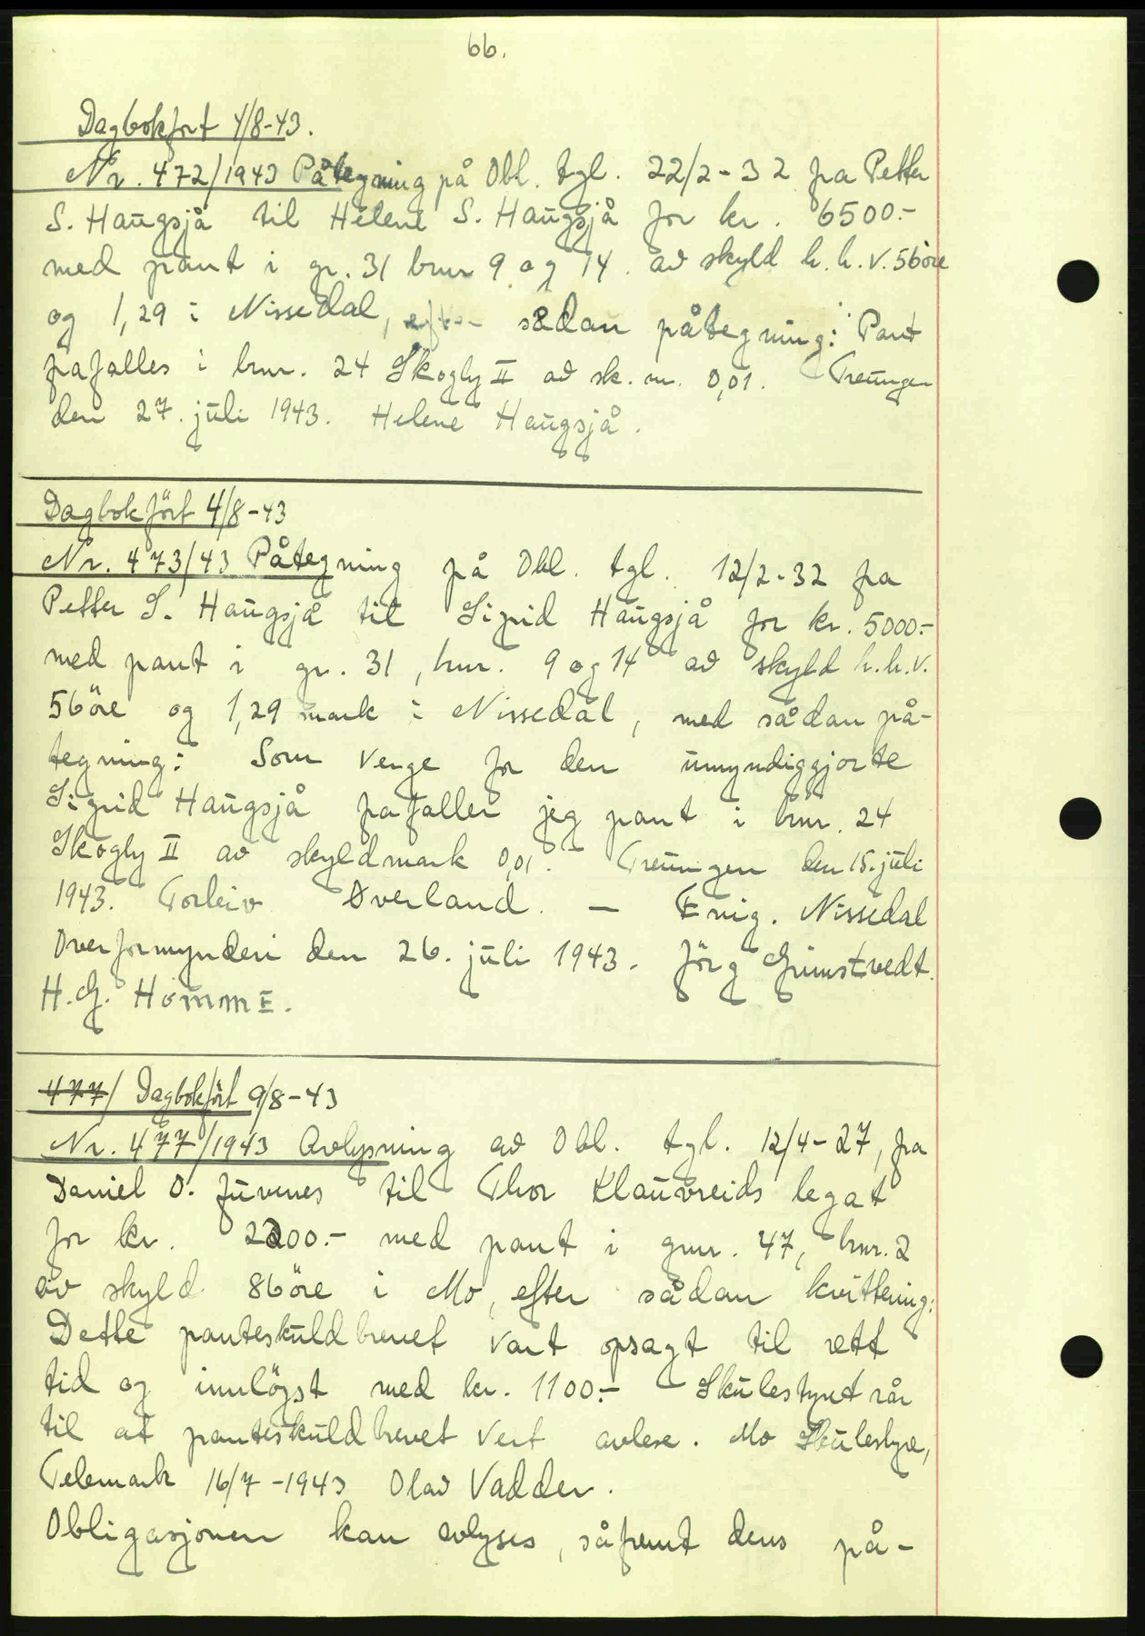 66.
Dagbokfört 4/8-43.
Nr. 472/1943 Påtegning på Obl. tgl. 22/2-32 fra Petter
S. Haugsjå til Helene S. Haugsjå for kr. 6500.-
med pant i gr. 31 bnr 9 og 14 av skyld h.h.v. 56 öre
og 1,29 i Nissedal, efter sådan påtegning: Pant
frafalles i bnr. 24 Skogly II av sk. m. 0,01. Treungen
den 27. juli 1943. Helene Haugsjå.
Dagbokfört 4/8-43
Nr. 473/43 Påtegning på Obl. tgl. 12/2-32 fra
Petter S. Haugsjå til Sigrid Haugsjå for kr. 5000.-
med pant i gr. 31, bnr. 9 og 14 av skyld h.h.v.
56 öre og 1,29 mark i Nissedal, med sådan på-
tegning: Som verge for den umyndiggjorte
Sigrid Haugsjå frafaller jeg pant i bnr. 24
Skogly II av skyldmark 0,01. Treungen den 15. juli
1943. Torleiv Överland. — Enig. Nissedal
Overformynderi den 26. juli 1943. Jörg Grimstvedt.
H.G. Homme.
477/ Dagbokfört 9/8-43
Nr. 477/1943 Avlysning av Obl. tgl. 12/4-27, fra
Daniel O. Juvenes til Thor Klauvreids legat
for kr. 2200.- med pant i gnr. 47, bnr. 2
av skyld 86 öre i Mo, efter sådan kvittering:
Dette panteskuldbrevet vart opsagt til rett
tid og innlöyst med kr. 1100.- Skulestyret rår
til at panteskuldbrevet vert avlese. Mo Skulestyre,
Telemark 16/7-1943 Olav Vadder.
Obligasjonen kan avlyses, såfremt dens på-